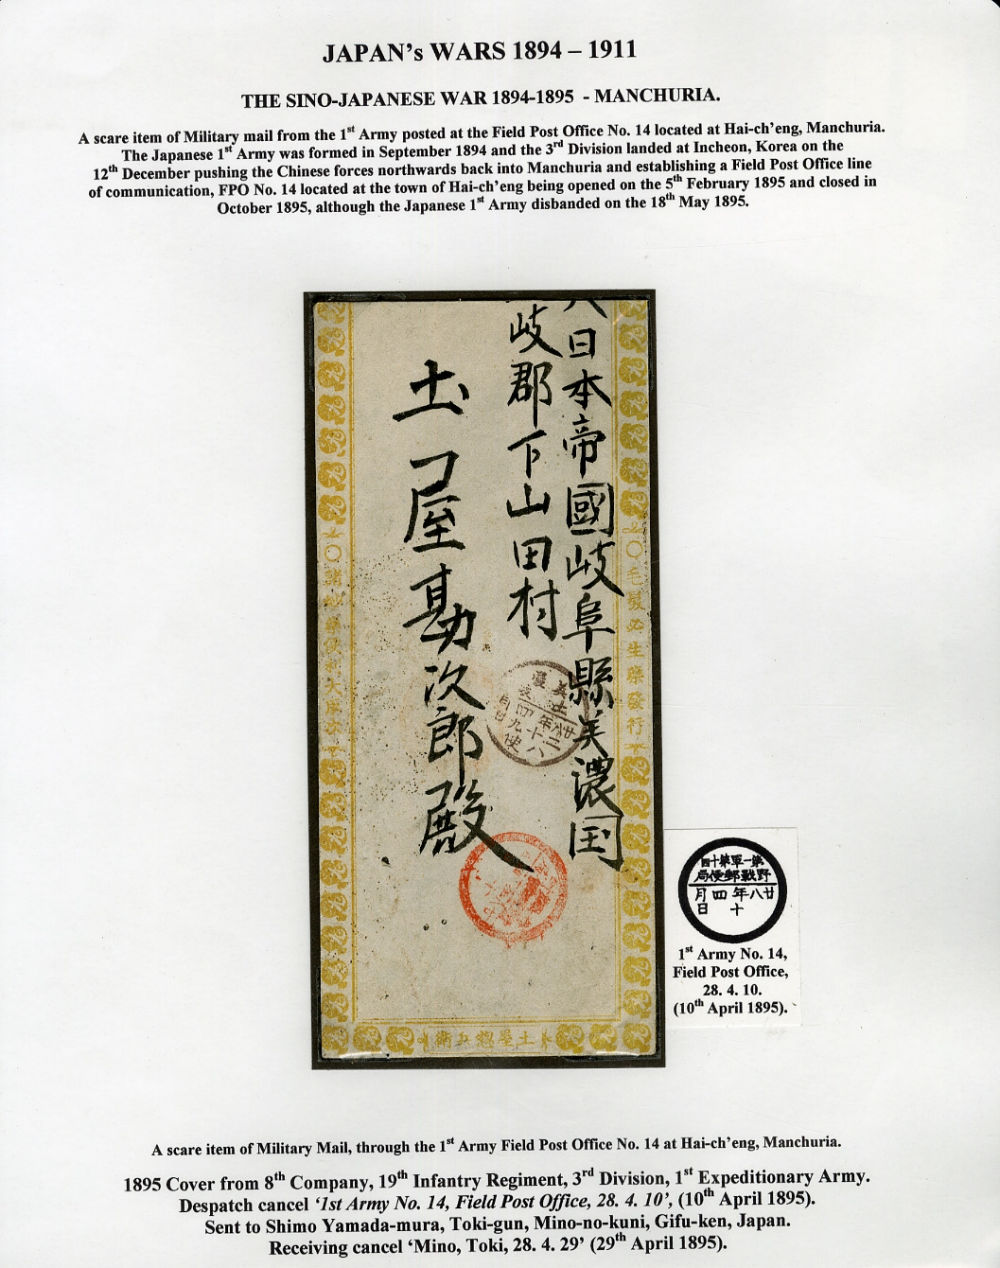 JAPAN's WARS 1894 – 1911
THE SINO-JAPANESE WAR 1894-1895 - MANCHURIA.
A scare item of Military mail from the 1st Army posted at the Field Post Office No. 14 located at Hai-ch'eng, Manchuria.
The Japanese 1st Army was formed in September 1894 and the 3rd Division landed at Incheon, Korea on the
12th December pushing the Chinese forces northwards back into Manchuria and establishing a Field Post Office line
of communication, FPO No. 14 located at the town of Hai-ch'eng being opened on the 5th February 1895 and closed in
October 1895, although the Japanese 1st Army disbanded on the 18th May 1895.
日本帝國岐阜縣美濃国
岐郡下山田村
土屋勘次郎殿
毛髪必生藥發行
廿八年
四月
第一軍第十四
野戰郵便局
廿八年四月
十日
1st Army No. 14,
Field Post Office,
28. 4. 10.
(10th April 1895).
A scare item of Military Mail, through the 1st Army Field Post Office No. 14 at Hai-ch'eng, Manchuria.
1895 Cover from 8th Company, 19th Infantry Regiment, 3rd Division, 1st Expeditionary Army.
Despatch cancel '1st Army No. 14, Field Post Office, 28. 4. 10', (10th April 1895).
Sent to Shimo Yamada-mura, Toki-gun, Mino-no-kuni, Gifu-ken, Japan.
Receiving cancel 'Mino, Toki, 28. 4. 29' (29th April 1895).